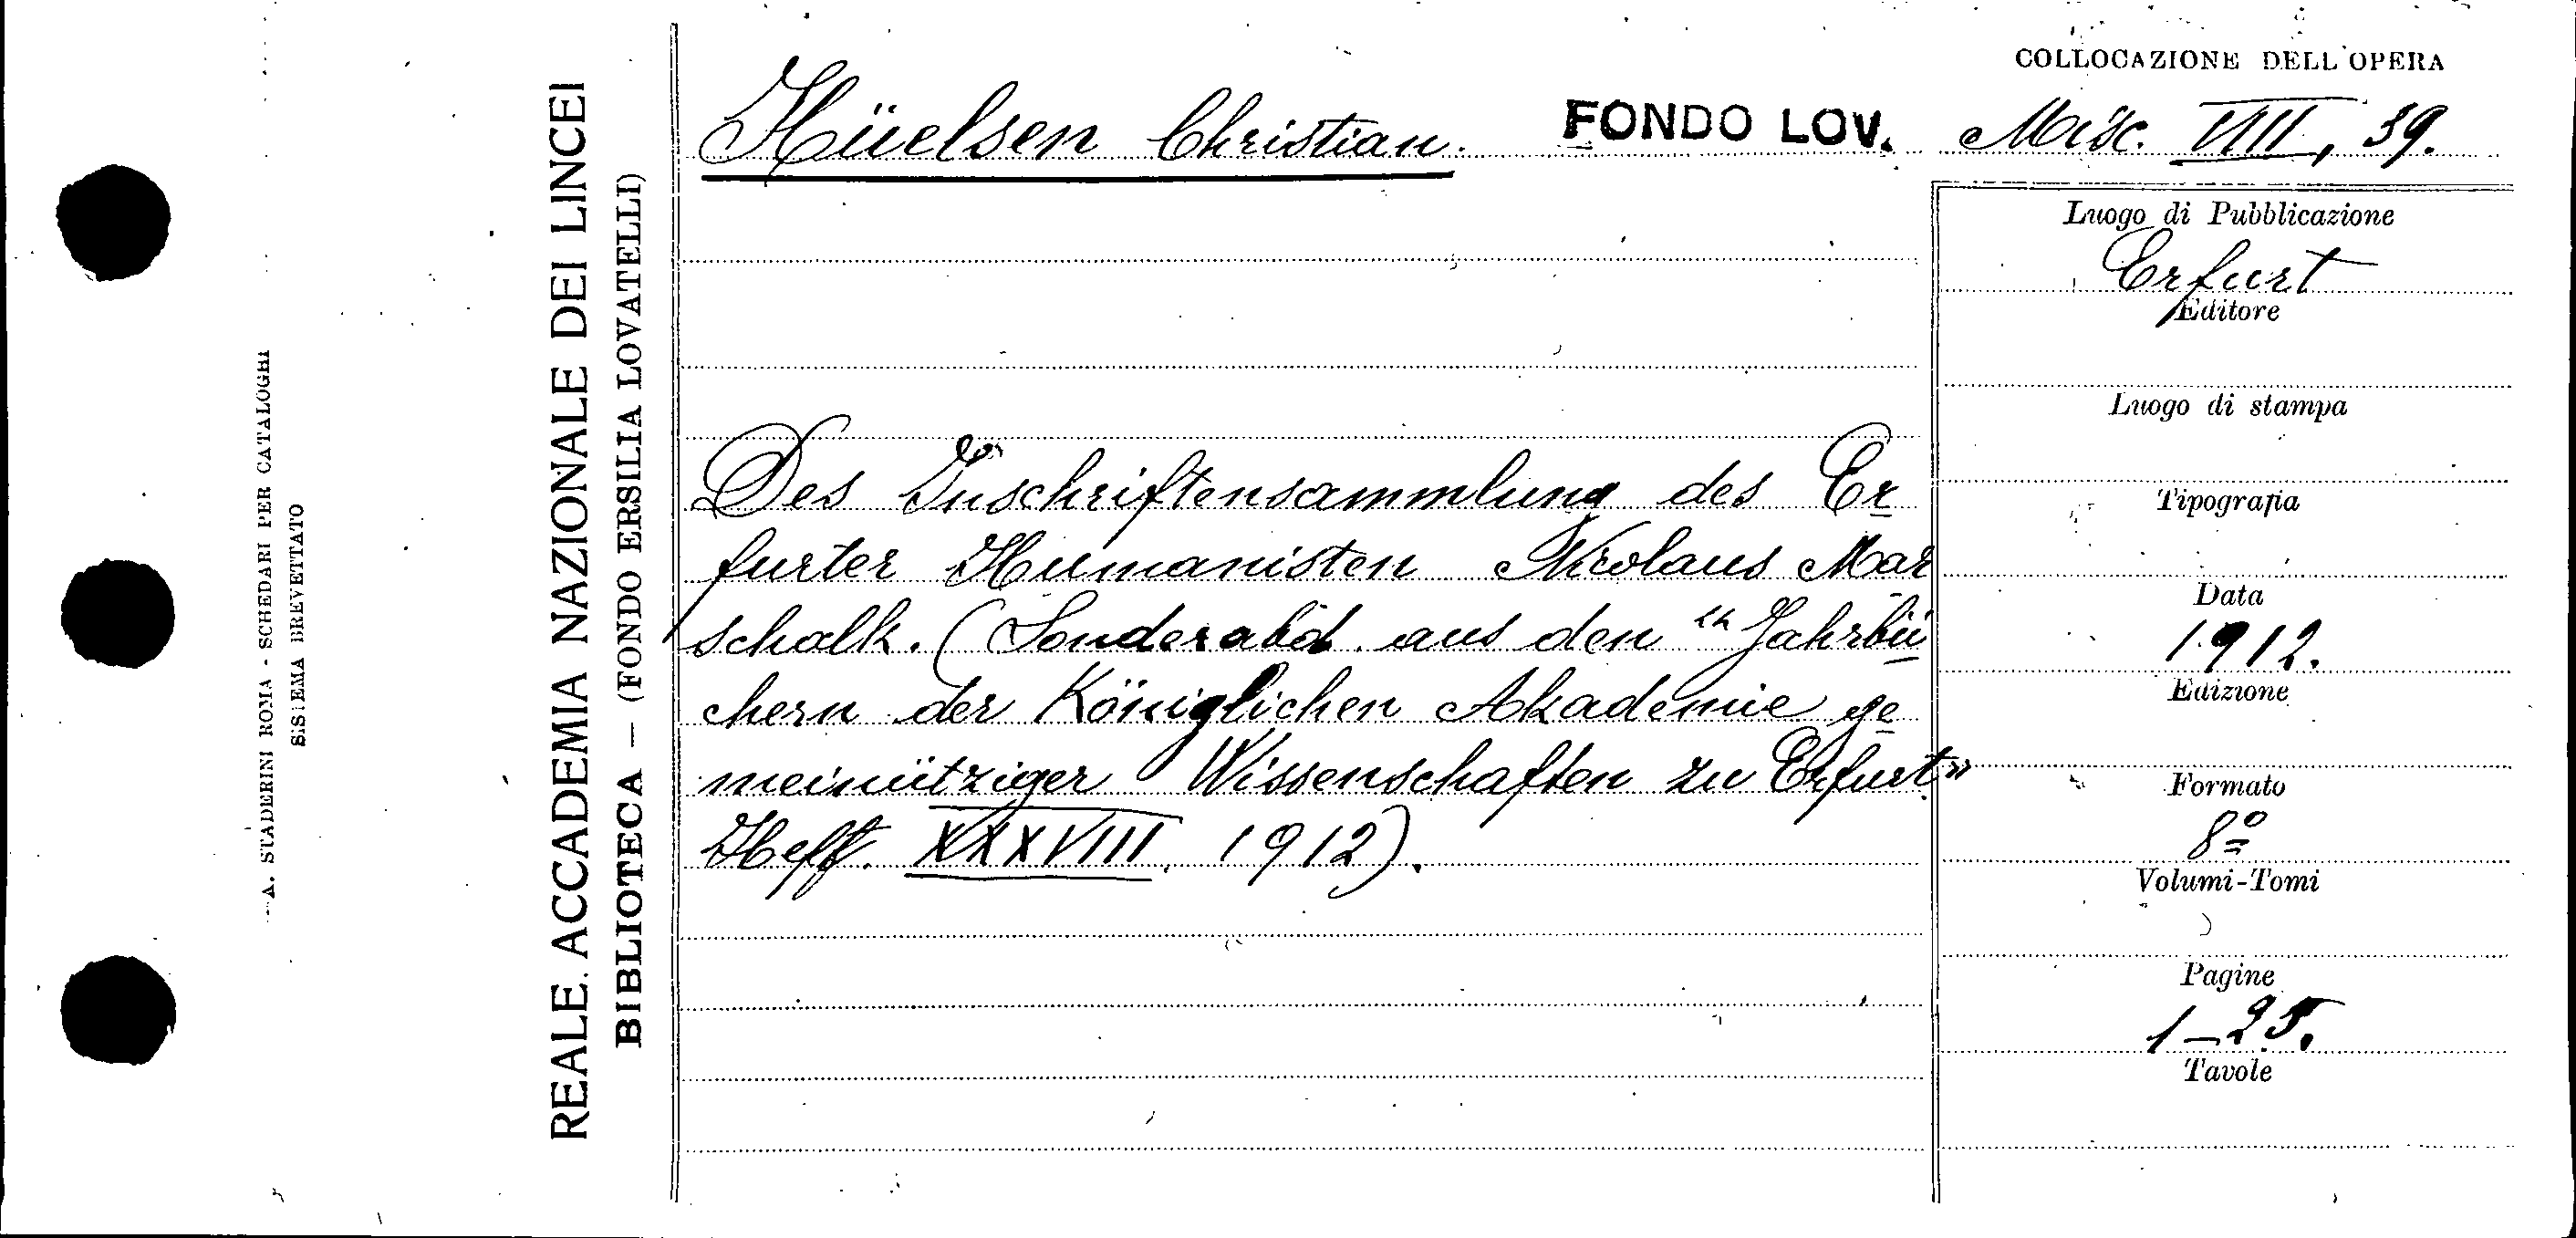 COLLOCAZIONE DELL'OPERA
Hüelsen Christian. FONDO LOV. Misc. VIII, 39.
Luogo di Pubblicazione
Erfurt
Editore
Luogo di stampa
Tipografia
Data
1912.
Edizione
Formato
8º
Volumi-Tomi
Pagine
1-25.
Tavole
Des Inschriftensammlung des Er
furter Humanisten Nicolaus Mar
schalk. (Sonderabd. aus den "Jahrbü
chern der Königlichen Akademie ge
meinütziger Wissenschaften zu Erfurt»
Heft. XXXVIII. 1912).
REALE ACCADEMIA NAZIONALE DEI LINCEI
BIBLIOTECA — (FONDO ERSILIA LOVATELLI)
A. STADERINI ROMA - SCHEDARI PER CATALOGHI
SISTEMA BREVETTATO